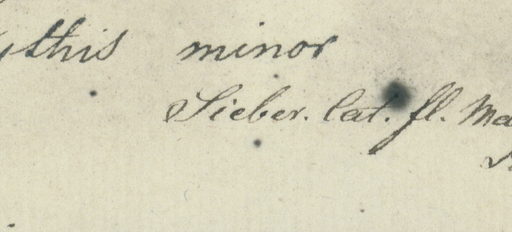 ythis minor
Sieber. Cat. fl. Ma